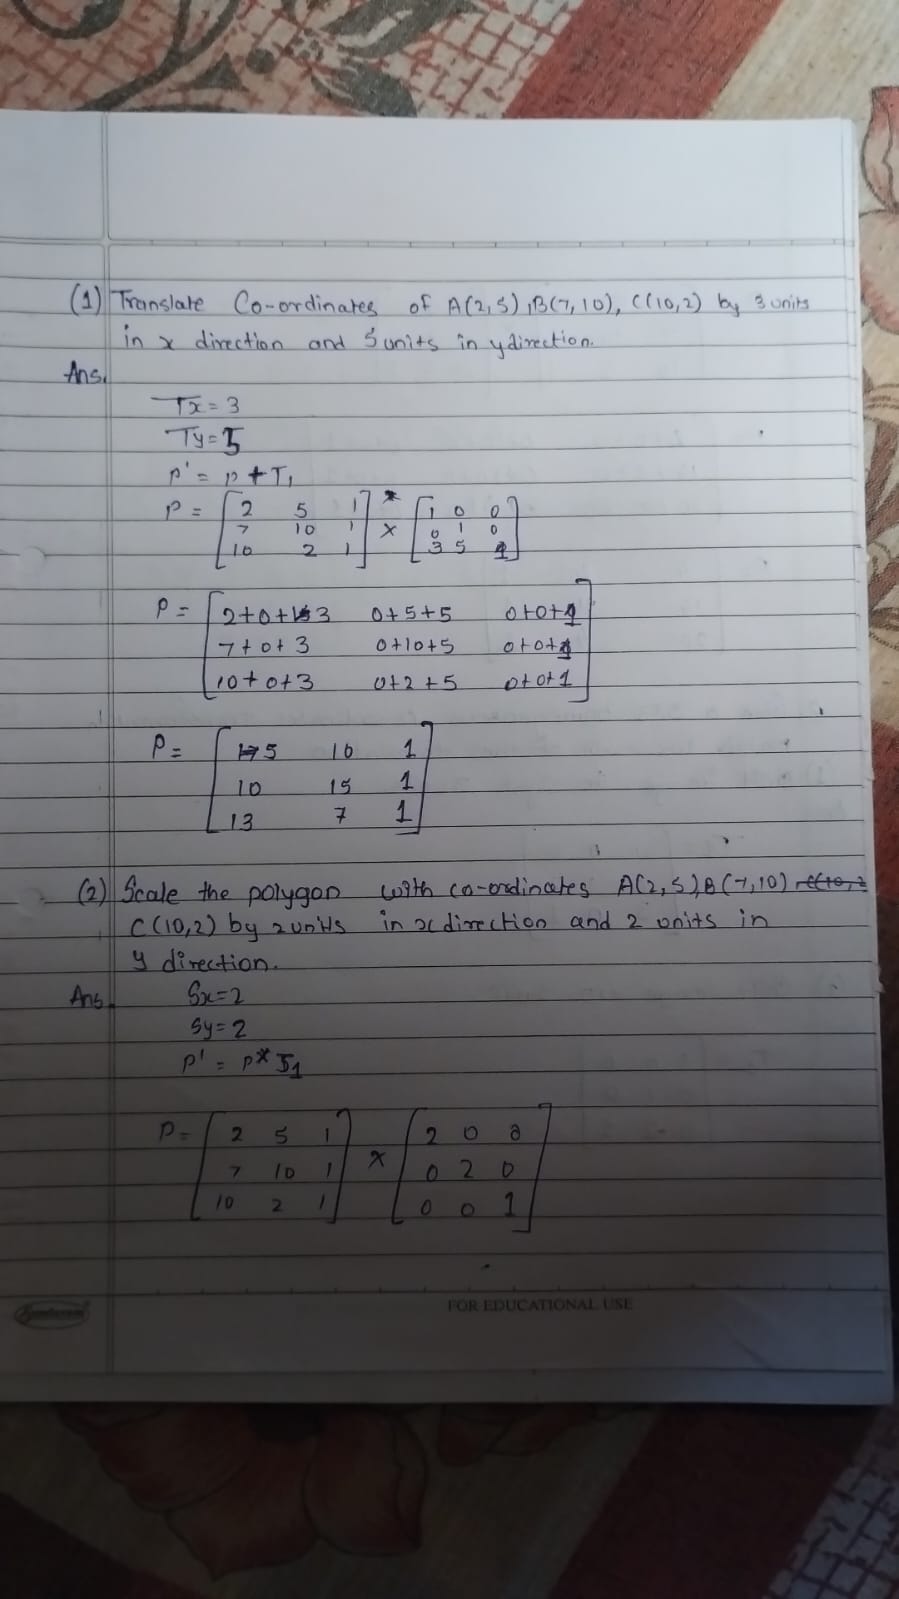 (1) Translate Co-ordinates of A(2,5), B(7,10), C(10,2) by 3 units
in x direction and 5 units in y direction.
Ans.
Tx = 3
Ty = 5
P' = P + T1
P = [ 2 5 1 ] * [ 1 0 0 ]
7 10 1 × 0 1 0
10 2 1 3 5 1
P = [ 2+0+3 0+5+5 0+0+1 ]
7+0+3 0+10+5 0+0+1
10+0+3 0+2+5 0+0+1
P = [ 5 10 1 ]
10 15 1
13 7 1
(2) Scale the polygon with co-ordinates A(2,5), B(7,10)
C(10,2) by 2 units in x direction and 2 units in
y direction.
Ans.
Sx=2
Sy=2
P' = P *
P = [ 2 5 1 ] × [ 2 0 0 ]
7 10 1 0 2 0
10 2 1 0 0 1
Sundaram
FOR EDUCATIONAL USE